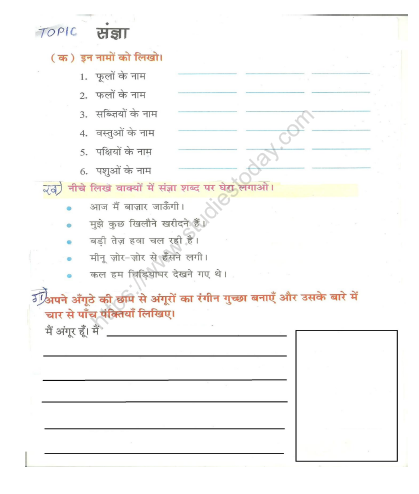 TOPIC संज्ञा
(क) इन नामों को लिखो।
1. फूलों के नाम
2. फलों के नाम
3. सब्ज़ियों के नाम
4. वस्तुओं के नाम
5. पक्षियों के नाम
6. पशुओं के नाम
ख) नीचे लिखे वाक्यों में संज्ञा शब्द पर घेरा लगाओ।
• आज मैं बाज़ार जाऊँगी।
• मुझे कुछ खिलौने खरीदने हैं।
• बड़ी तेज़ हवा चल रही है।
• मीनू ज़ोर-ज़ोर से हँसने लगी।
• कल हम चिड़ियाघर देखने गए थे।
ग) अपने अँगूठे की छाप से अंगूरों का रंगीन गुच्छा बनाएँ और उसके बारे में
चार से पाँच पंक्तियाँ लिखिए।
मैं अंगूर हूँ। मैं
https://www.studiestoday.com